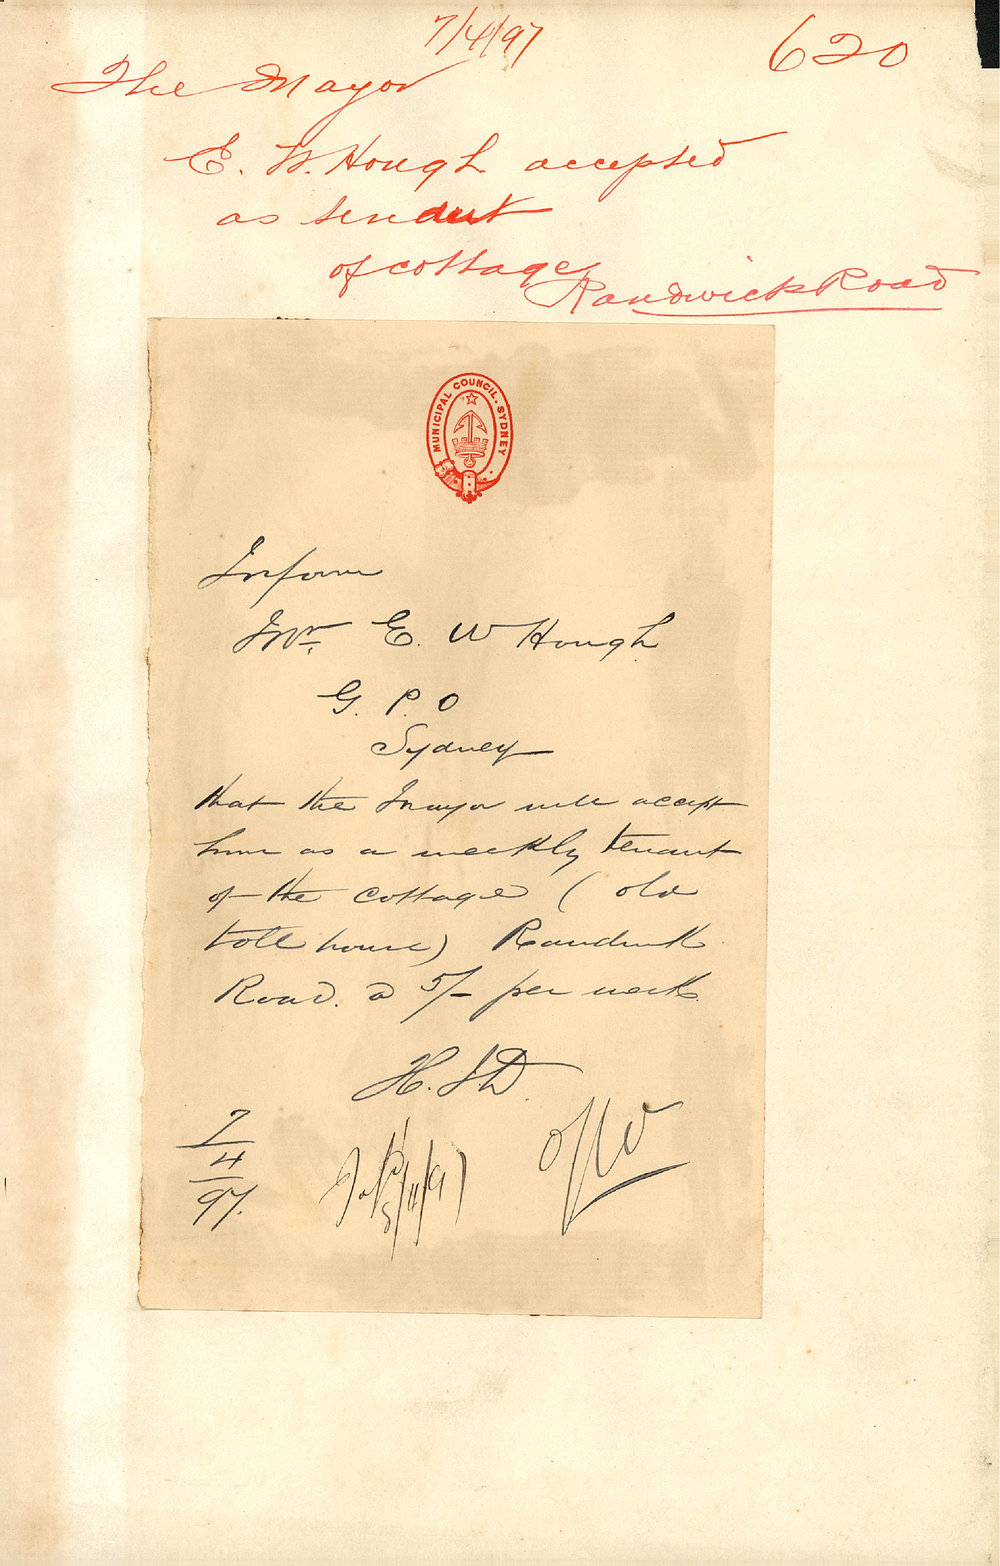 7/4/97
620
The Mayor
E. W. Hough accepted
as tenant
of cottage
Randwick Road
MUNICIPAL COUNCIL. SYDNEY
Inform
Mr. E. W Hough
G. P. O
Sydney
that the Mayor will accept
him as a weekly tenant
of the cottage (old
toll house) Randwick
Road. @ 5/- per week
7
4
97.
8/4/97